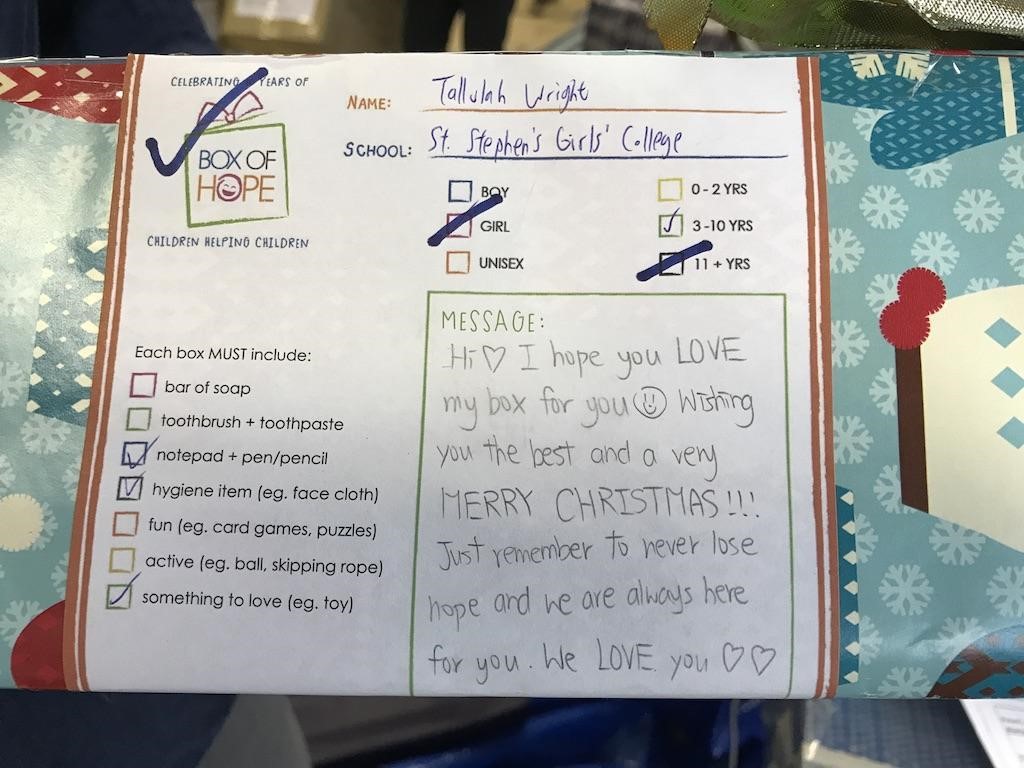 CELEBRATING YEARS OF
BOX OF
HOPE
CHILDREN HELPING CHILDREN
NAME: Tallulah Wright
SCHOOL: St. Stephen's Girls' College
BOY
GIRL
UNISEX
0 - 2 YRS
3 -10 YRS
11 + YRS
Each box MUST include:
bar of soap
toothbrush + toothpaste
notepad + pen/pencil
hygiene item (eg. face cloth)
fun (eg. card games, puzzles)
active (eg. ball, skipping rope)
something to love (eg. toy)
MESSAGE:
Hi♡ I hope you LOVE
my box for you☺ Wishing
you the best and a very
MERRY CHRISTMAS!!!
Just remember to never lose
hope and we are always here
for you. We LOVE you ♡♡